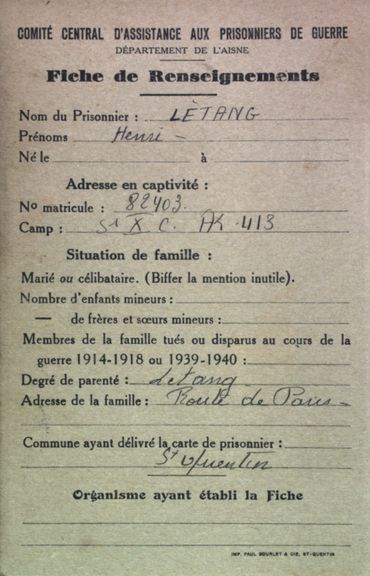 COMITÉ CENTRAL D'ASSISTANCE AUX PRISONNIERS DE GUERRE
DÉPARTEMENT DE L'AISNE
Fiche de Renseignements
Nom du Prisonnier : LÈTANG
Prénoms Henri -
Né le à
Adresse en captivité :
No matricule : 82403.
Camp : St X C. AK 413
Situation de famille :
Marié ou célibataire. (Biffer la mention inutile).
Nombre d'enfants mineurs :
— de frères et sœurs mineurs :
Membres de la famille tués ou disparus au cours de la
guerre 1914-1918 ou 1939-1940 :
Degré de parenté : Letang
Adresse de la famille : Route de Paris -
Commune ayant délivré la carte de prisonnier :
St Quentin
Organisme ayant établi la Fiche
IMP. PAUL BOURLET & CIE, ST-QUENTIN